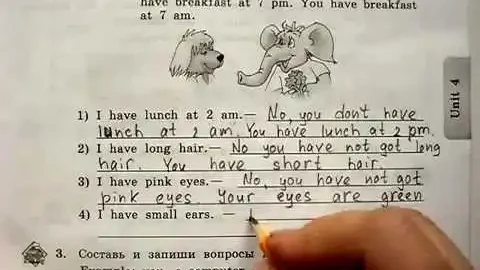 have breakfast at 7 pm. You have breakfast
at 7 am.
1) I have lunch at 2 am. — No, you don't have
lunch at 2 am. You have lunch at 2 pm.
2) I have long hair. — No you have not got long
hair. You have short hair.
3) I have pink eyes. — No, you have not got
pink eyes. Your eyes are green
4) I have small ears. —
Unit 4
3. Составь и запиши вопросы